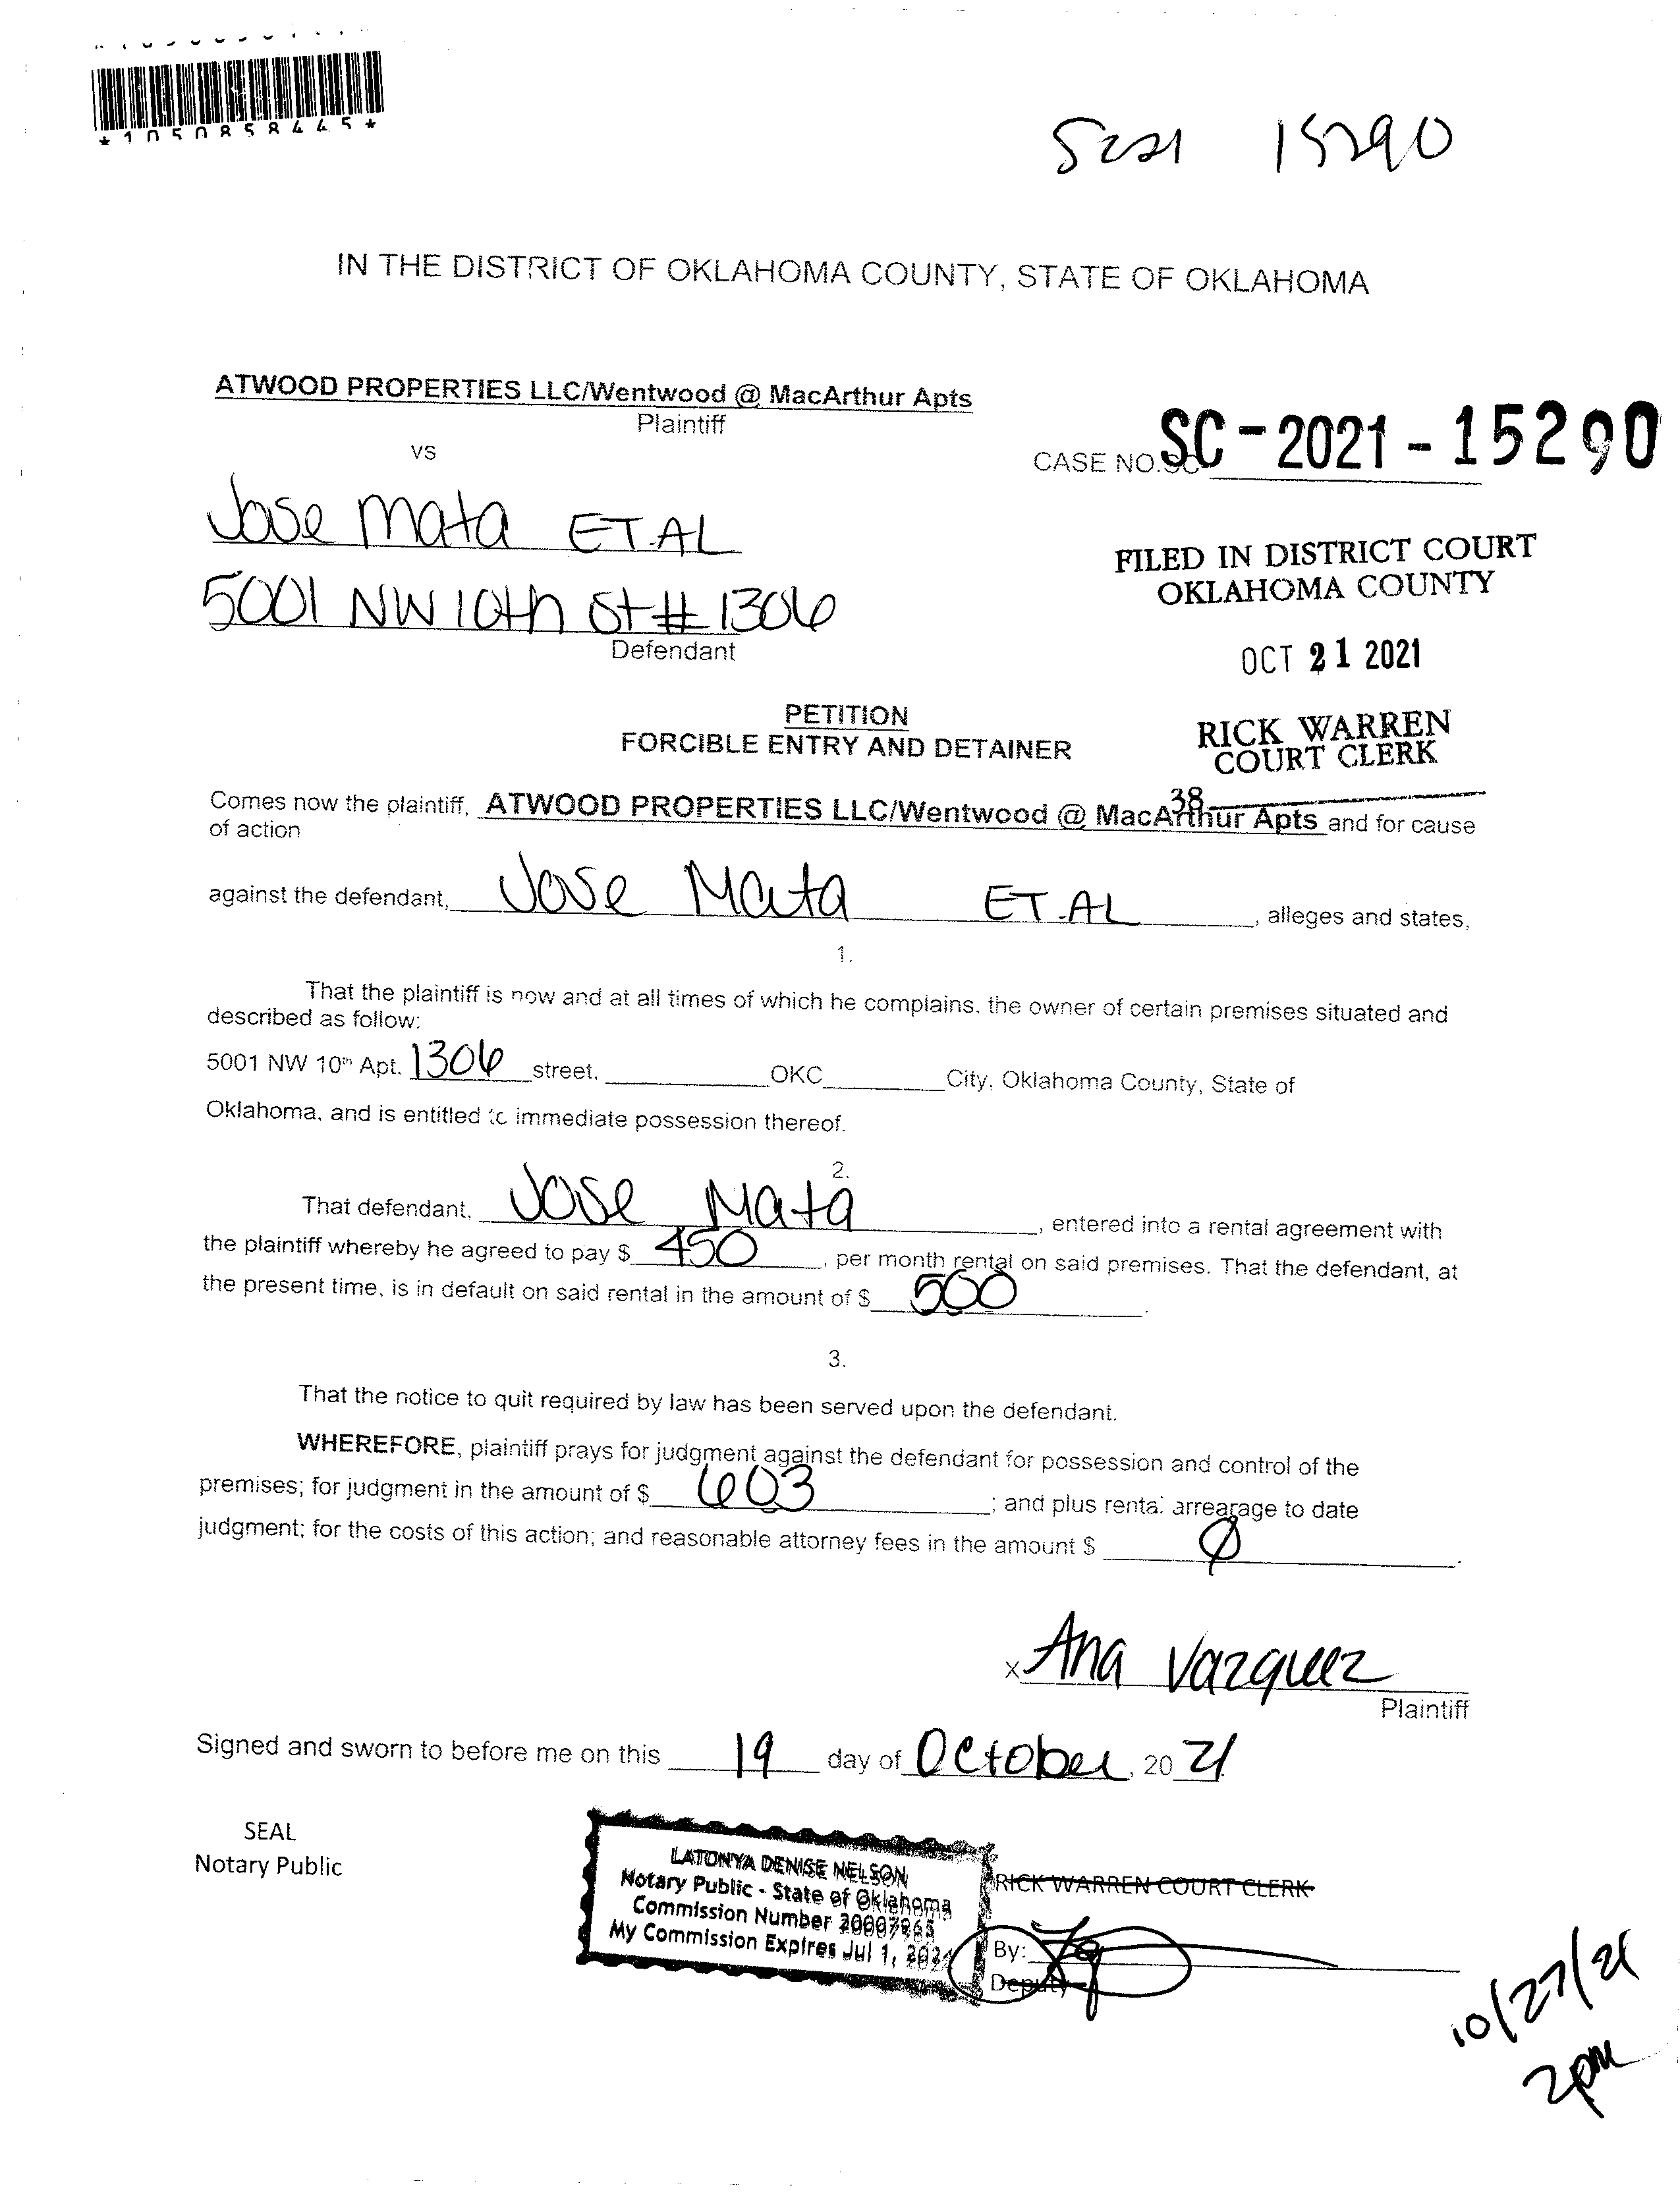 *1050858445*
5221 15290
IN THE DISTRICT OF OKLAHOMA COUNTY, STATE OF OKLAHOMA
ATWOOD PROPERTIES LLC/Wentwood @ MacArthur Apts
Plaintiff
vs
CASE NO. SC-2021-15290
Jose Mata ET.AL
5001 NW 10th St # 1306
Defendant
FILED IN DISTRICT COURT
OKLAHOMA COUNTY
OCT 21 2021
RICK WARREN
COURT CLERK
38
PETITION
FORCIBLE ENTRY AND DETAINER
Comes now the plaintiff, ATWOOD PROPERTIES LLC/Wentwood @ MacArthur Apts and for cause
of action
against the defendant, Jose Mata ET.AL, alleges and states,
1.
That the plaintiff is now and at all times of which he complains, the owner of certain premises situated and
described as follow:
5001 NW 10th Apt. 1306 street, OKC City, Oklahoma County, State of
Oklahoma, and is entitled to immediate possession thereof.
2.
That defendant, Jose Mata, entered into a rental agreement with
the plaintiff whereby he agreed to pay $ 450, per month rental on said premises. That the defendant, at
the present time, is in default on said rental in the amount of $ 500.
3.
That the notice to quit required by law has been served upon the defendant.
WHEREFORE, plaintiff prays for judgment against the defendant for possession and control of the
premises; for judgment in the amount of $ 603; and plus rental arrearage to date
judgment; for the costs of this action; and reasonable attorney fees in the amount $ 0.
x Ana Vazquez
Plaintiff
Signed and sworn to before me on this 19 day of October, 20 21
SEAL
Notary Public
LATONYA DENISE NELSON
Notary Public - State of Oklahoma
Commission Number
My Commission Expires Jul 1,
RICK WARREN COURT CLERK
By:
Deputy
10/27/21
2pm